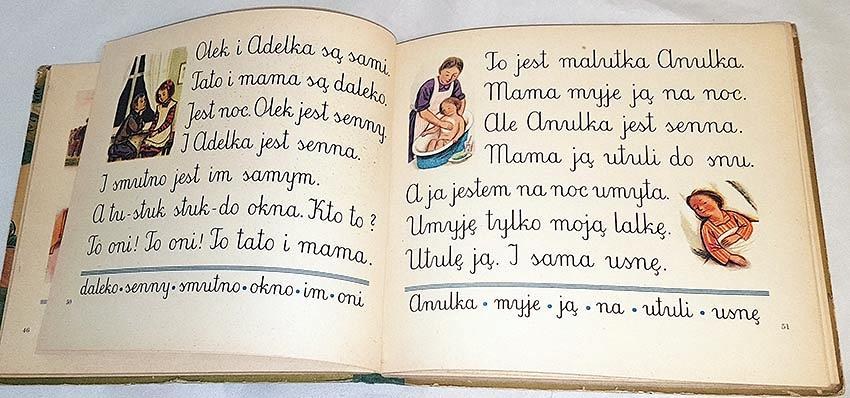 Olek i Adelka są sami.
Tato i mama są daleko.
Jest noc. Olek jest senny.
I Adelka jest senna.
I smutno jest im samym.
A tu-stuk stuk-do okna. Kto to ?
To oni! To oni! To tato i mama.
daleko•senny•smutno•okno•im•oni
50
46
To jest malutka Anulka.
Mama myje ją na noc.
Ale Anulka jest senna.
Mama ją utuli do snu.
A ja jestem na noc umyta.
Umyję tylko moją lalkę.
Utulę ją. I sama usnę.
Anulka • myje • ją • na • utuli • usnę
51